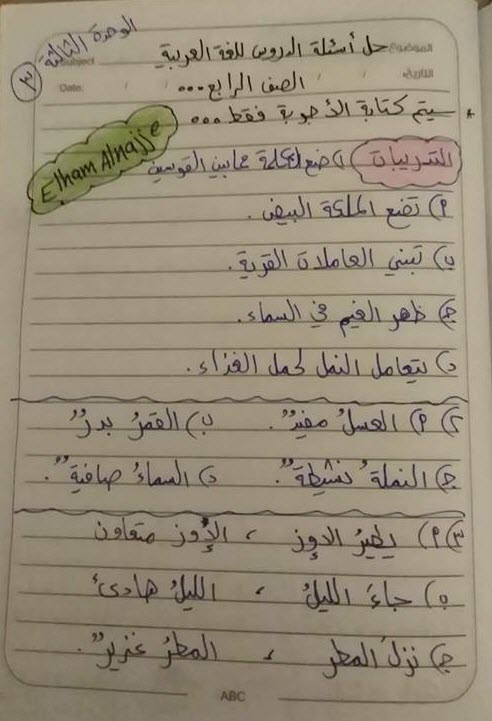 الوحدة الثالثة
٣
الموضوع Subject حل أسئلة الدروس للغة العربية
التاريخ Date: / / الصف الرابع...
* سيتم كتابة الأجوبة فقط...
Elham Alnajje
التدريبات ١) ضع كلمة مما بين القوسين
أ) تضع الملكة البيض.
ب) تبني العاملات القرية.
ج) ظهر الغيم في السماء.
د) يتعامل النمل لحمل الغذاء.
٢) أ) العسلُ مفيدٌ. ب) القمرُ بدرٌ
ج) النملةُ نشيطةٌ. د) السماءُ صافيةٌ.
٣) أ) يطيرُ الاوز ، الأوز متعاون
ب) جاءَ الليلُ ، الليلُ هادئ
ج) نزلَ المطر ، المطرُ غزيرٌ.
ABC